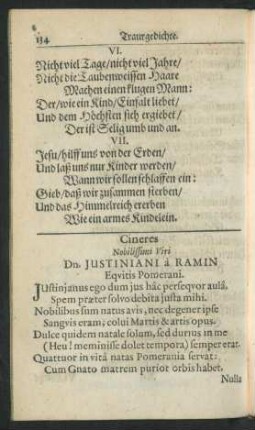 114 Traurgedichte.
VI.
Nicht viel Tage/ nicht viel Jahre/
Nicht die Taubenweissen Haare
Machen einen klugen Mann:
Der/ wie ein Kind/ Einfalt liebet/
Und dem Höchsten sich ergiebet/
Der ist Selig umb und an.
VII.
Jesu/ hüff uns von der Erden/
Und laß uns nur Kinder werden/
Wann wir sollen schlaffen ein:
Gieb/ daß wir zusammen sterben/
Und das Himmelreich ererben
Wie ein armes Kindelein.
Cineres
Nobilissimi Viri
Dn. JUSTINIANI á RAMIN
Eqvitis Pomerani.
Justinjanus ego dum jus hâc perseqvor aulâ,
Spem præter solvo debita justa mihi.
Nobilibus sum natus avis, nec degener ipse
Sangvis eram; colui Martis & artis opus.
Dulce quidem natale solum, sed durius in me
(Heu! meminisse dolet tempora) semper erat.
Quattuor in vitâ natas Pomerania servat:
Cum Gnato matrem purior orbis habet.
Nulla